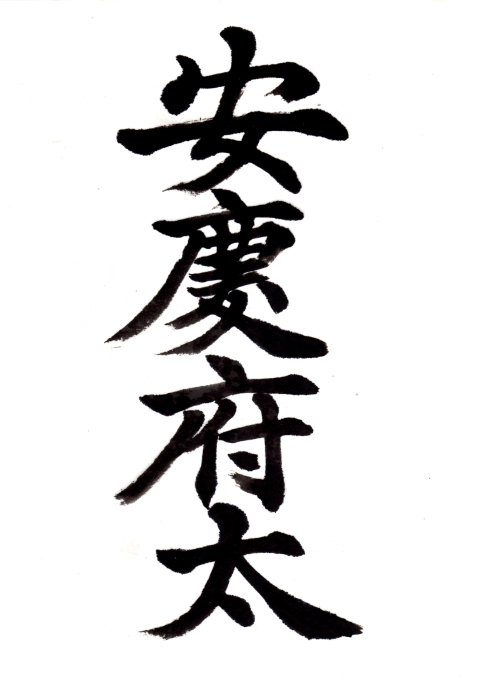 安慶府太